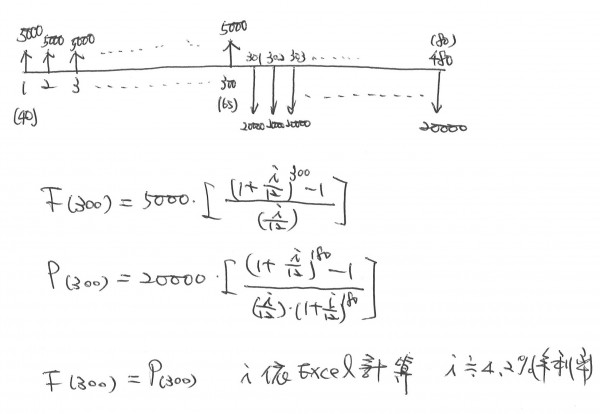 5000 5000 5000 ........ .. 5000 (80)
301 302 303 ....... 480
1 2 3 ........... 300
(40) (65) ........
20000 20000 20000 20000
F(300) = 5000·[((1+i/12)^300 -1)/(i/12)]
P(300) = 20000·[((1+i/12)^180 -1)/((i/12)·(1+i/12)^180)]
F(300) = P(300) i 依 Excel 計算 i≒4.2%(年利率)